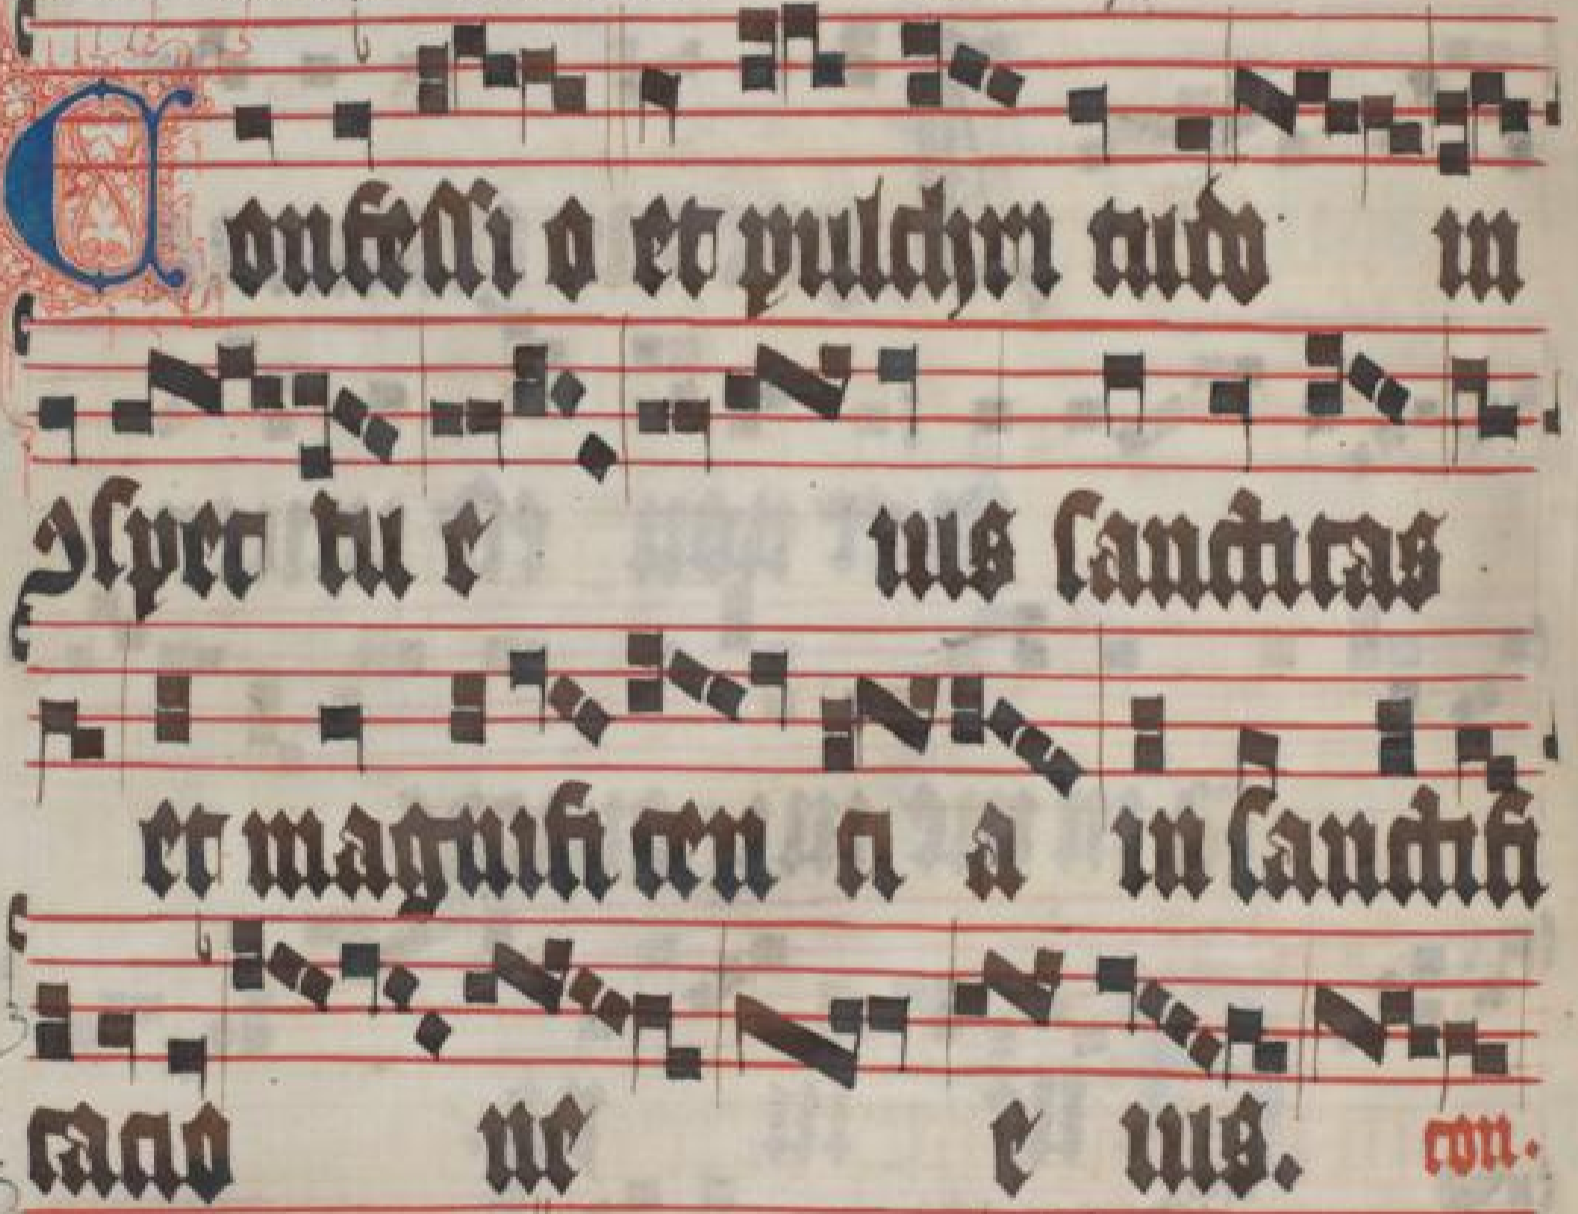 Confessi o et pulchri tudo in
conspec tu e ius sanctitas
et magnifi cen ci a in sanctifi
cacio ne e ius. con.